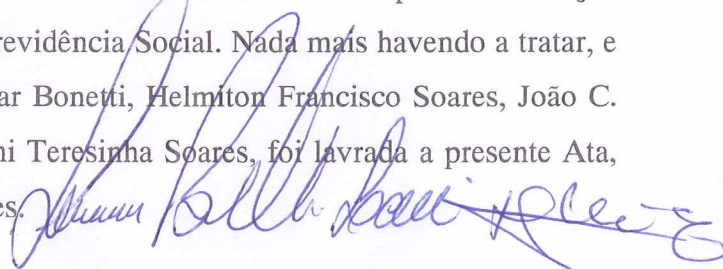 revidência Social. Nada mais havendo a tratar, e
ar Bonetti, Helmiton Francisco Soares, João C.
ni Teresinha Soares, foi lavrada a presente Ata,
es.